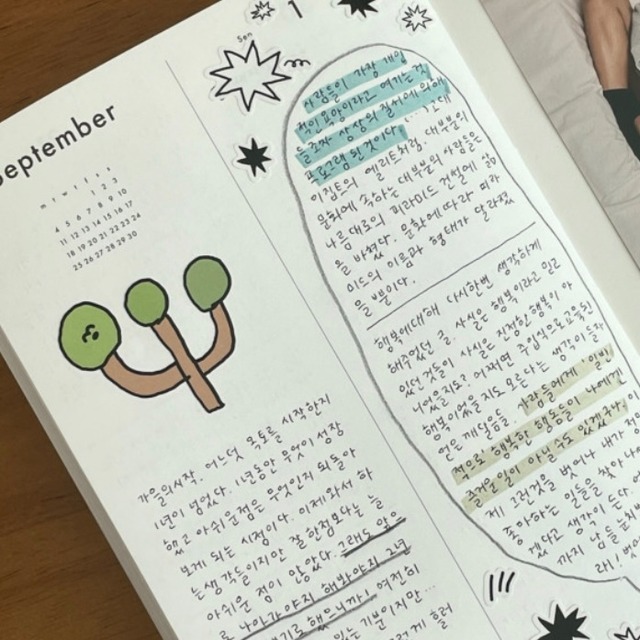 September
m t w t f s s
1 2 3
4 5 6 7 8 9 10
11 12 13 14 15 16 17
18 19 20 21 22 23 24
25 26 27 28 29 30
가을의시작. 어느덧 독토를 시작한지
1년이 넘었다. 1년동안 무엇이 성장
했고 아쉬운점은 무엇인지 되돌아
보게 되는 시점이다. 이제와서 하
는생각들이지만 잘한점보다는 늘
아쉬운 점이 많았다. 그래도 앞으
로 나아가야지 해봐야지
여전히
있는 기분이지만...
Sen
1
사람들이 가장 개인
적인 욕망이라고 여기는
은 조차 상상의 질서에 의해
프로그램 된것이다.
이집트의 엘리트처럼 대부분의
문화에 속하는 대부분의 사람들은
나름대로의 피라미드 건설에 삶
을 바쳤다. 문화에 따라 피라
미드의 이름과 형태가 달라졌
을 뿐이다.
행복에대해 다시한번 생각하게
해주었던 글. 사실은 행복이라고 믿고
있던 것들이 사실은 진정한 행복이 아
니었을지도? 어쩌면 주입식으로 교육된
행복이었을지도 모른다는 생각이 들자
얻은 깨달음은. 사람들에게 일반
적으로 행복한 행동들이 나에게
즐거운 일이 아닐수도 있겠구나!
이제 그런것을 벗어나 내가
좋아하는 일들을 찾아 나
겠다고 생각이 드
까지 나
래!